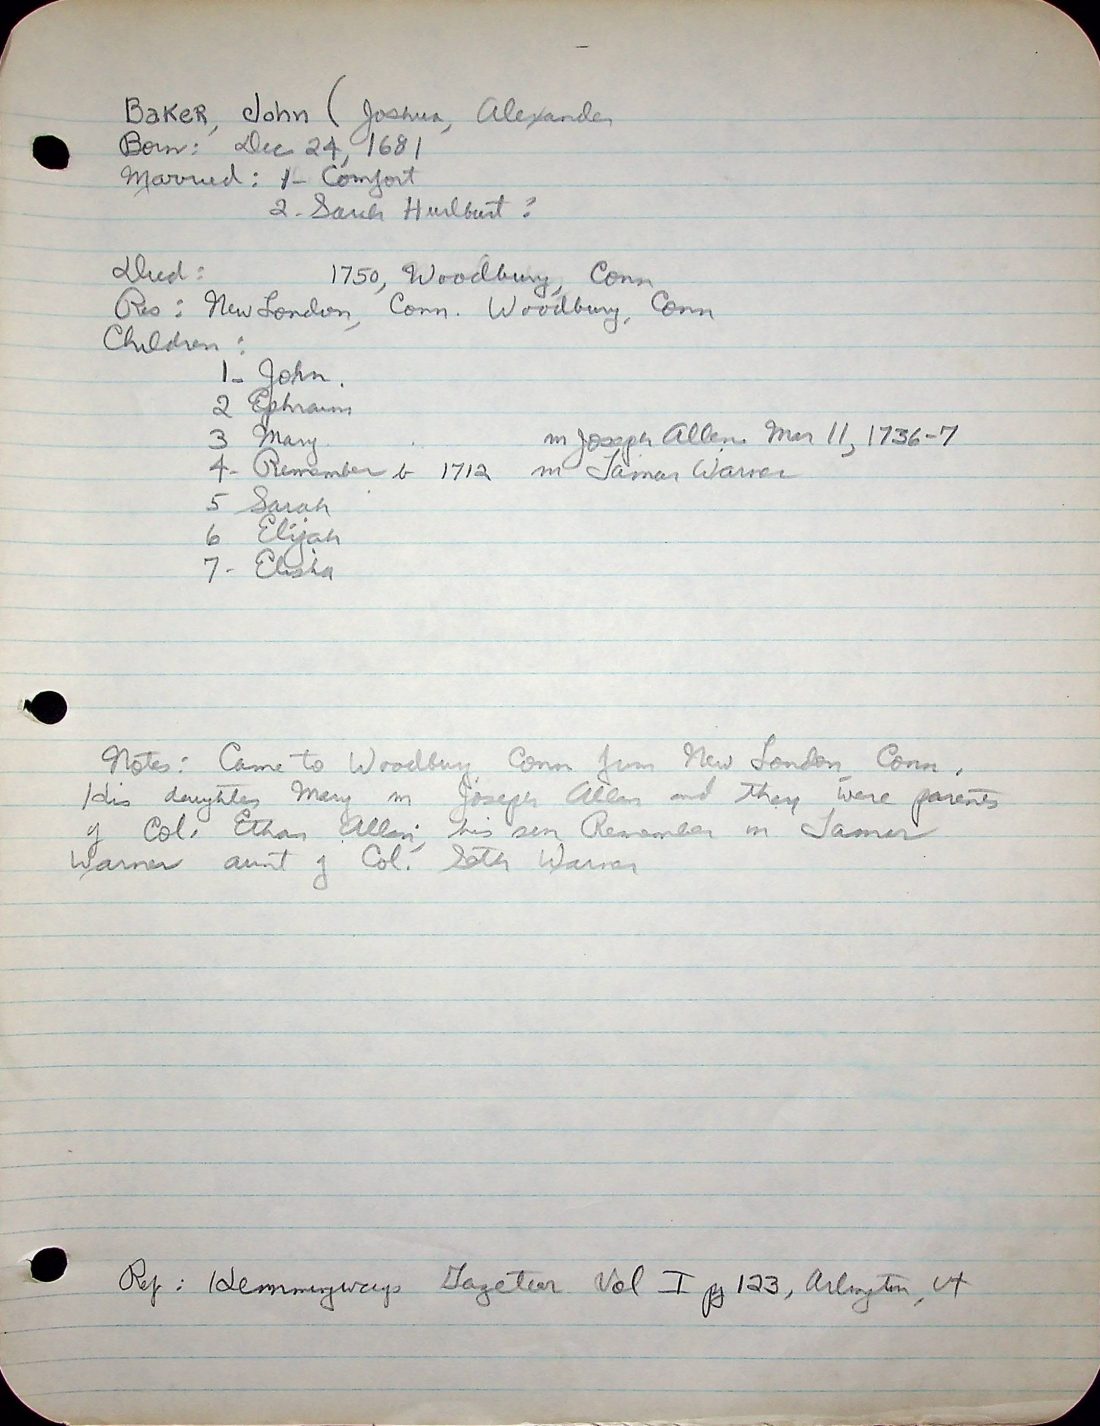 Baker, John (Joshua, Alexander
Born: Dec 24, 1681
Married: 1- Comfort
2- Sarah Hurlburt?
Died: 1750, Woodbury, Conn
Res: New London, Conn. Woodbury, Conn
Children:
1- John.
2 Ephraim
3 Mary m Joseph Allen. Mar 11, 1736-7
4- Remember b 1712 m Tamar Warner
5 Sarah
6 Elijah
7- Elisha
Notes: Came to Woodbury Conn from New London, Conn.
His daughter Mary m Joseph Allen and they were parents
of Col. Ethan Allen; his son Remember m Tamar
Warner aunt of Col. Seth Warner
Ref: Hemmingways Gazeteer Vol I pg 123, Arlington, Vt